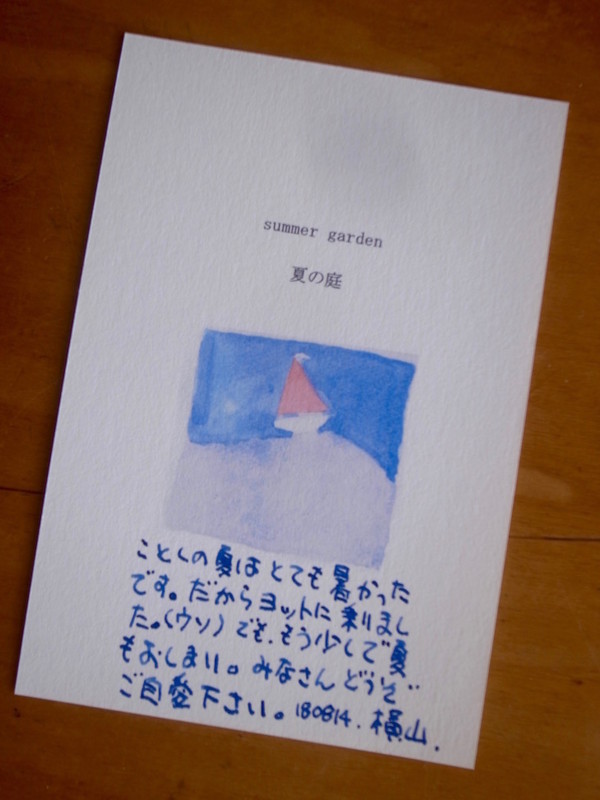 summer garden
夏の庭
ことしの夏はとても暑かった
です。だからヨットに乗りまし
た。(ウソ) でも、もう少しで夏
もおしまい。みなさんどうぞ
ご自愛下さい。180814. 横山.